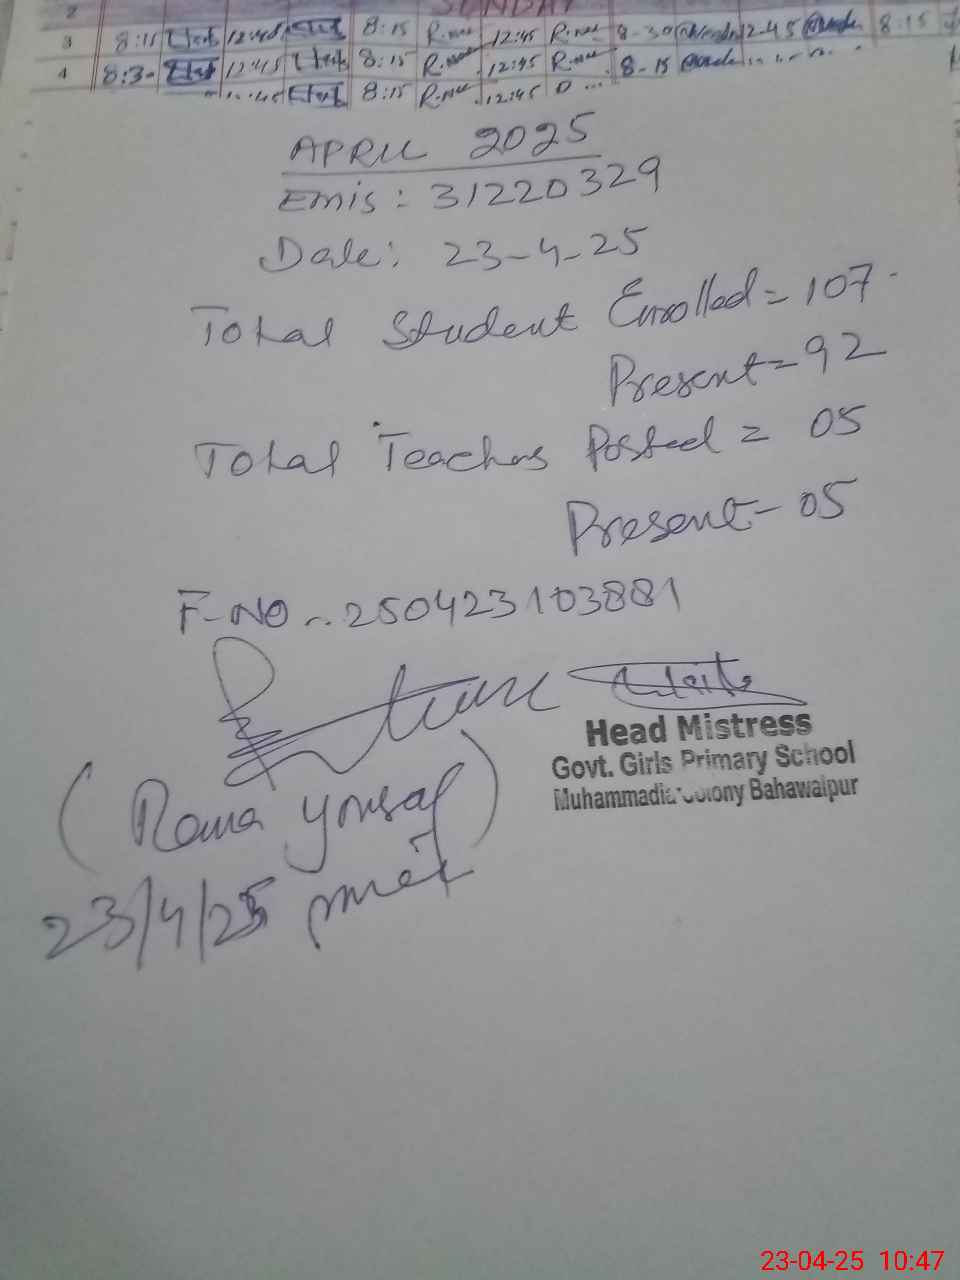 SUNDAY
3 8:15 12:45 8:15 12:45 8-30 12-45 8:15
4 8:30 12:45 8:15 12:45 8-15
8:15 12:45
APRIL 2025
Emis: 31220329
Date: 23-4-25
Total Student Enrolled = 107
Present = 92
Total Teachers Posted = 05
Present - 05
F-No. 250423103881
Head Mistress
Govt. Girls Primary School
Muhammadia Colony Bahawalpur
(Rana Yousaf)
23/4/25
23-04-25 10:47